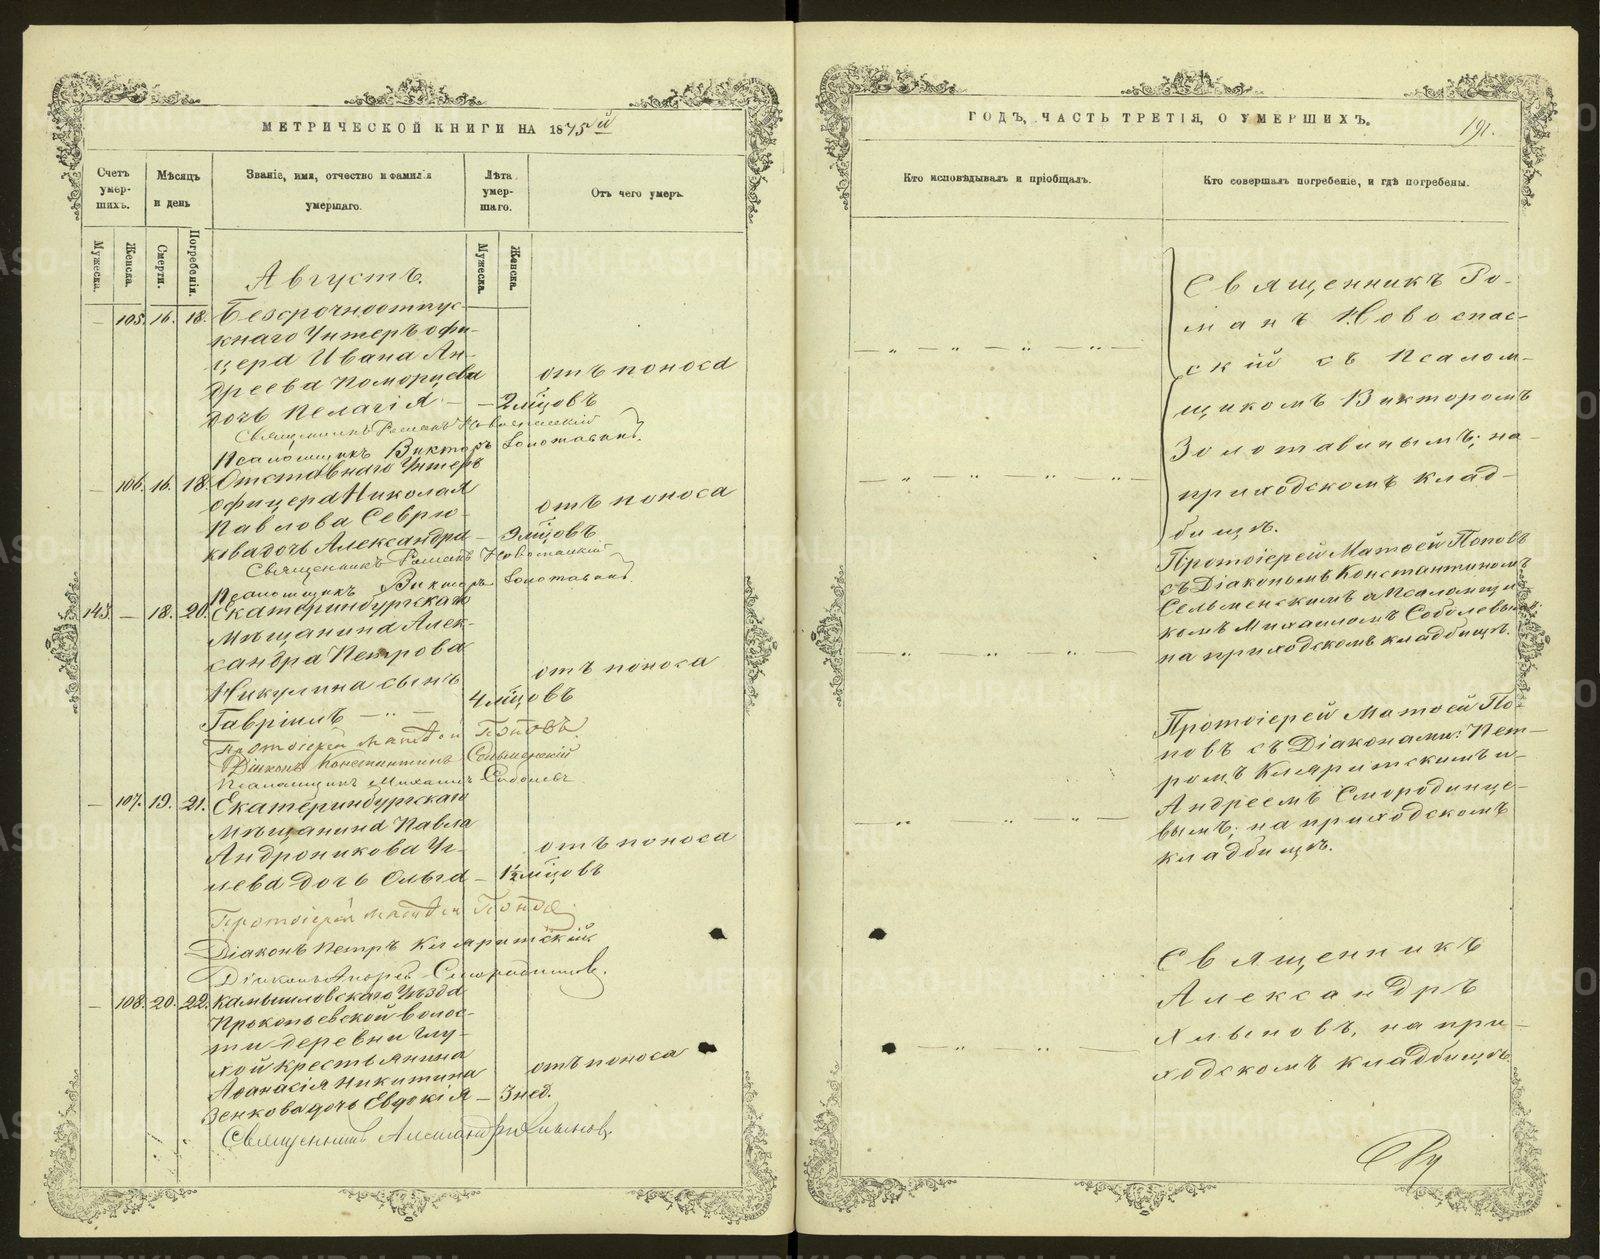 МЕТРИЧЕСКОЙ КНИГИ НА 1875й
Счетъ умер-шихъ.
Мѣсяцъ и день
Званіе, имя, отчество и фамилія умершаго.
Лѣта умер-шаго.
Отъ чего умеръ.
Мужеска.
Женска.
Смерти.
Погребенія.
Мужеска.
Женска.
Августъ.
— 105. 16. 18. Безсрочноотпус-
кнаго Унтеръ офи-
цера Ивана Ан-
дреева Поморцева отъ поноса
дочь Пелагія — — 2 мцовъ
Священникъ Романъ Новоспасскій
Псаломщикъ Викторъ Золотавинъ
— 106. 16. 18. Отставнаго Унтеръ
офицера Николая
Павлова Севрю- отъ поноса
кова дочь Александра — 3 мцовъ
Священникъ Романъ Новоспасскій
Псаломщикъ Викторъ Золотавинъ
143. — 18. 20. Екатеринбургскаго
мѣщанина Алек-
сандра Петрова отъ поноса
Никулина сынъ 4 мцовъ
Гавріилъ — „ —
Протоіерей Матѳей Поповъ
Діаконъ Константинъ Сельменскій
Псаломщикъ Михаилъ Соболевъ
— 107. 19. 21. Екатеринбургскаго
мѣщанина Павла
Андроникова Уг- отъ поноса
лева дочь Ольга — 1½ мцовъ
Протоіерей Матѳей Поповъ
Діаконъ Петръ Кляритскій
Діаконъ Андрей Смородинцевъ.
— 108. 20. 22. Камышловскаго Уѣзда
Прокопьевской волос-
ти деревни Глу-
хой крестьянина отъ поноса
Аѳанасія Никитина
Зенкова дочь Евдокія — 3 нед.
Священникъ Александръ Хлыновъ.
ГОДЪ, ЧАСТЬ ТРЕТІЯ, О УМЕРШИХЪ.
191.
Кто исповѣдывалъ и пріобщалъ.
Кто совершалъ погребеніе, и гдѣ погребены.
Священникъ Ро-
манъ Новоспас-
скій съ Псалом-
щикомъ Викторомъ
Золотавинымъ; на
приходскомъ клад-
бищѣ.
Протоіерей Матѳей Поповъ
съ Діакономъ Константиномъ
Сельменскимъ и Псаломщи
комъ Михаиломъ Соболевымъ;
на приходскомъ кладбищѣ.
Протоіерей Матѳей По-
повъ съ Діаконами: Пет-
ромъ Кляритскимъ и
Андреемъ Смородинце-
вымъ; на приходскомъ
кладбищѣ.
Священникъ
Александръ
Хлыновъ, на при-
ходскомъ кладбищѣ.